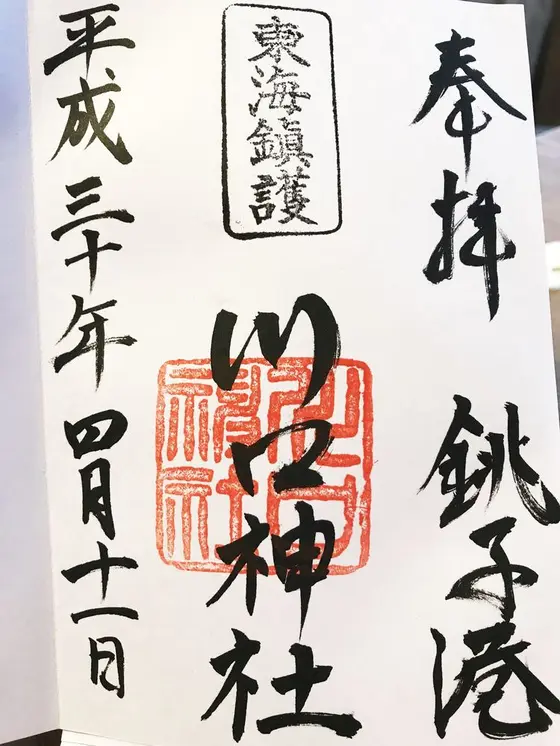 奉拝 銚子港
東海鎮護
川口神社
川口神社
平成三十年四月十一日